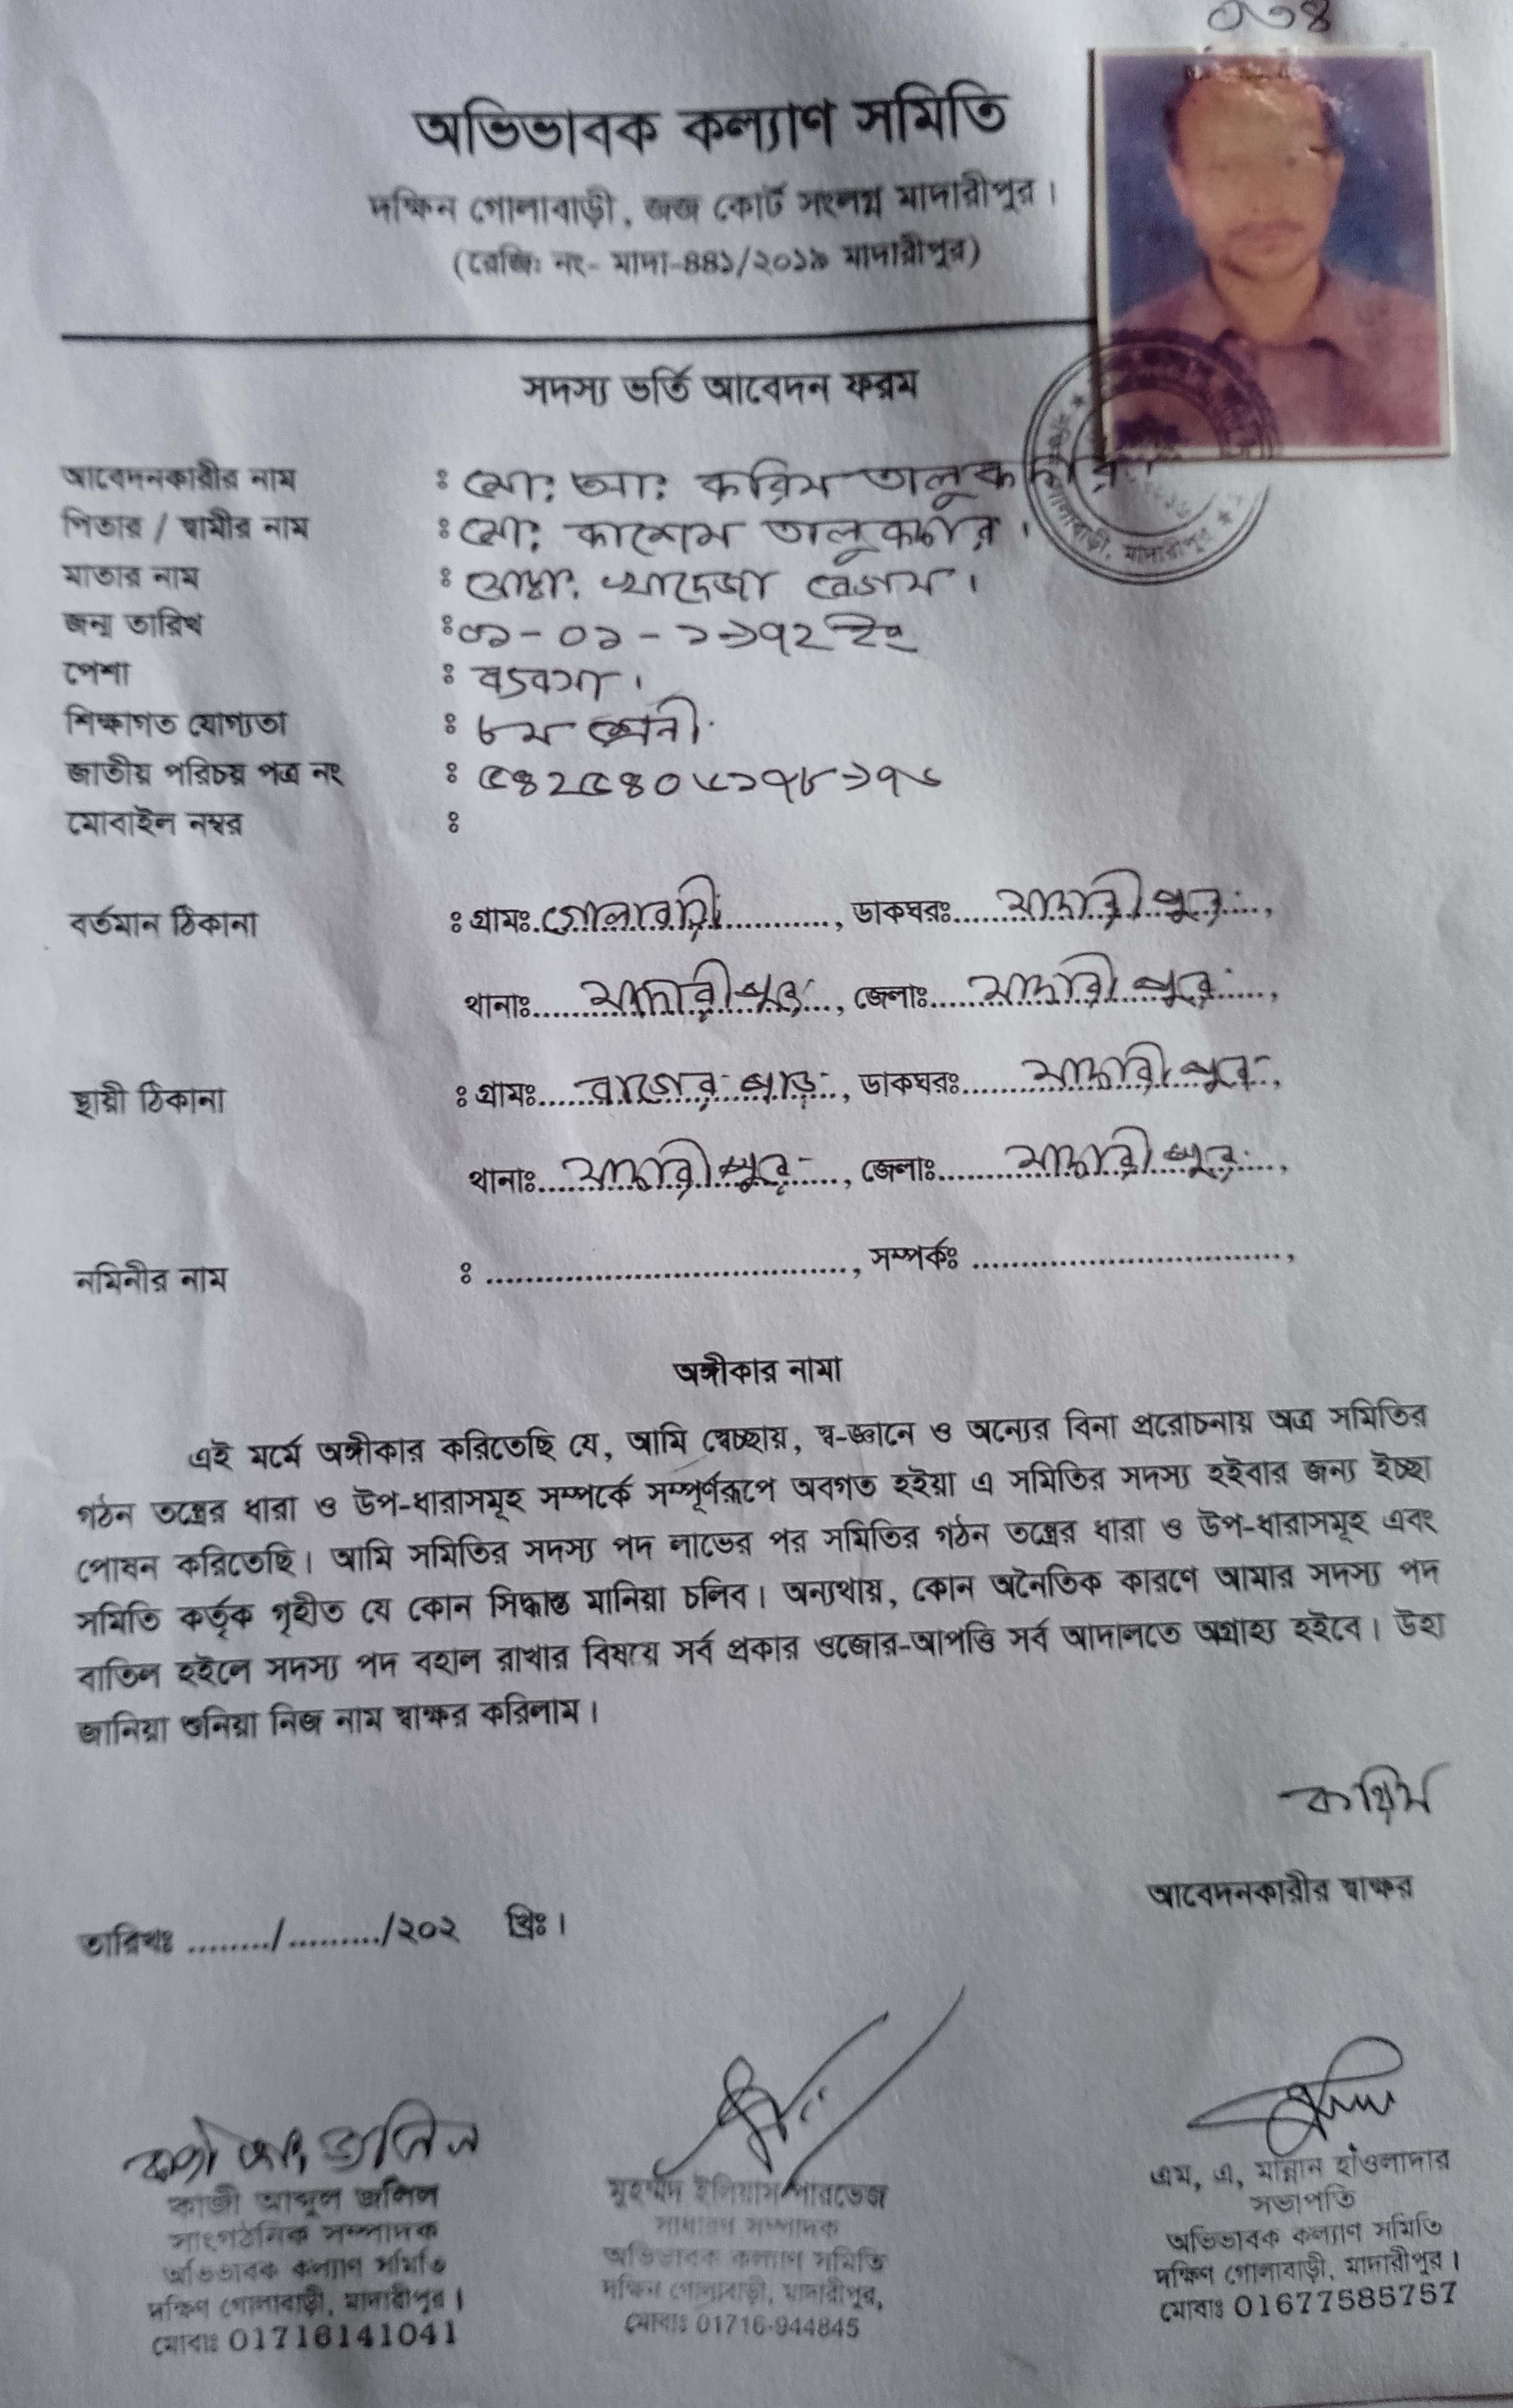 ০৩৪
অভিভাবক কল্যাণ সমিতি
দক্ষিন গোলাবাড়ী, জজ কোর্ট সংলগ্ন মাদারীপুর।
(রেজিঃ নং- মাদা-৪৪১/২০১৯ মাদারীপুর)
সদস্য ভর্তি আবেদন ফরম
আবেদনকারীর নাম : মো: আ: করিম তালুকদার।
পিতার / স্বামীর নাম : মো: কাশেম তালুকদার।
মাতার নাম : মোছা: খাদেজা বেগম।
জন্ম তারিখ : ০১-০১-১৯৭২ ইং
পেশা : ব্যবসা।
শিক্ষাগত যোগ্যতা : ৮ম শ্রেনী
জাতীয় পরিচয় পত্র নং : ৫৪২৫৪০৬১৭৮১৭৬
মোবাইল নম্বর :
বর্তমান ঠিকানা : গ্রামঃ গোলাবাড়ী, ডাকঘরঃ মাদারীপুর,
থানাঃ মাদারীপুর, জেলাঃ মাদারীপুর,
স্থায়ী ঠিকানা : গ্রামঃ বাগের পাড়, ডাকঘরঃ মাদারীপুর,
থানাঃ মাদারীপুর, জেলাঃ মাদারীপুর,
নমিনীর নাম : ...................................., সম্পর্কঃ ................................,
অঙ্গীকার নামা
এই মর্মে অঙ্গীকার করিতেছি যে, আমি স্বেচ্ছায়, স্ব-জ্ঞানে ও অন্যের বিনা প্ররোচনায় অত্র সমিতির
গঠন তন্ত্রের ধারা ও উপ-ধারাসমূহ সম্পর্কে সম্পূর্ণরূপে অবগত হইয়া এ সমিতির সদস্য হইবার জন্য ইচ্ছা
পোষন করিতেছি। আমি সমিতির সদস্য পদ লাভের পর সমিতির গঠন তন্ত্রের ধারা ও উপ-ধারাসমূহ এবং
সমিতি কর্তৃক গৃহীত যে কোন সিদ্ধান্ত মানিয়া চলিব। অন্যথায়, কোন অনৈতিক কারণে আমার সদস্য পদ
বাতিল হইলে সদস্য পদ বহাল রাখার বিষয়ে সর্ব প্রকার ওজোর-আপত্তি সর্ব আদালতে অগ্রাহ্য হইবে। উহা
জানিয়া শুনিয়া নিজ নাম স্বাক্ষর করিলাম।
করিম
আবেদনকারীর স্বাক্ষর
তারিখঃ ......../........./২০২ খ্রিঃ।
কাজী আঃ জলিল
কাজী আব্দুল জলিল
সাংগঠনিক সম্পাদক
অভিভাবক কল্যাণ সমিতি
দক্ষিণ গোলাবাড়ী, মাদারীপুর।
মোবাঃ 01716141041
মুহম্মদ ইলিয়াস পারভেজ
সাধারণ সম্পাদক
অভিভাবক কল্যাণ সমিতি
দক্ষিন গোলাবাড়ী, মাদারীপুর,
মোবাঃ 01716-944845
এম, এ, মান্নান হাওলাদার
সভাপতি
অভিভাবক কল্যাণ সমিতি
দক্ষিণ গোলাবাড়ী, মাদারীপুর।
মোবাঃ 01677585757